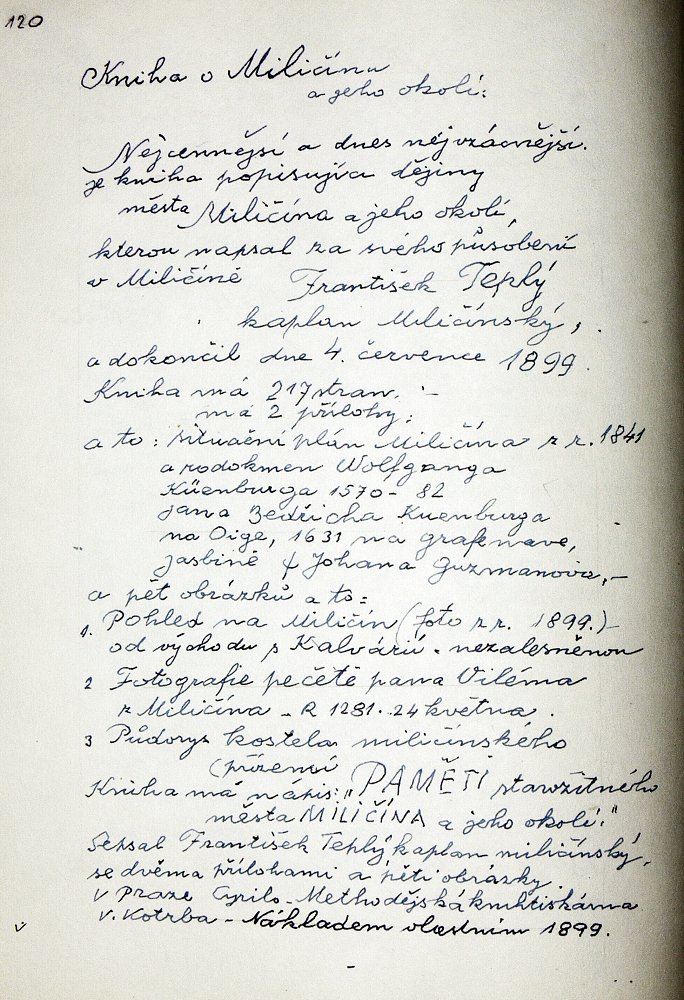 120
Kniha o Miličínu
a jeho okolí:
Nejcennější a dnes nejvzácnější.
je kniha popisující dějiny
města Miličína a jeho okolí,
kterou napsal za svého působení
v Miličíně František Teplý
kaplan Miličínský,
a dokončil dne 4. července 1899.
Kniha má 217 stran. -
má 2 přílohy:
a to: situační plán Miličína z r. 1841
a rodokmen Wolfganga
Küenburga 1570 - 82
Jana Bedřicha Kuenburga
na Oige, 1631 na
Johana Guzmanova, -
a pět obrázků a to:
1. Pohled na Miličín (foto z r. 1899.) -
od východu s Kalvárií - nezalesněnou
2 Fotografie pečetě pana Viléma
z Miličína - R 1281. 24 května.
3 Půdorys kostela miličínského
(přízemí
Kniha má nápis: "PAMĚTI starožitného
města MILIČÍNA a jeho okolí."
Sepsal František Teplý kaplan miličínský,
se dvěma přílohami a pěti obrázky.
V Praze Cyrilo-Methodějská knihtiskárna
V. Kotrba - Nákladem vlastním 1899.
v